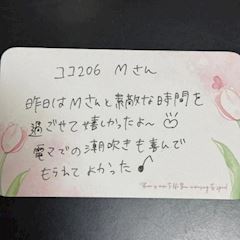 ココ206 Mさん
昨日はMさんと素敵な時間を
過ごせて嬉しかったよ〜
電マでの潮吹きも喜んで
もらえてよかった